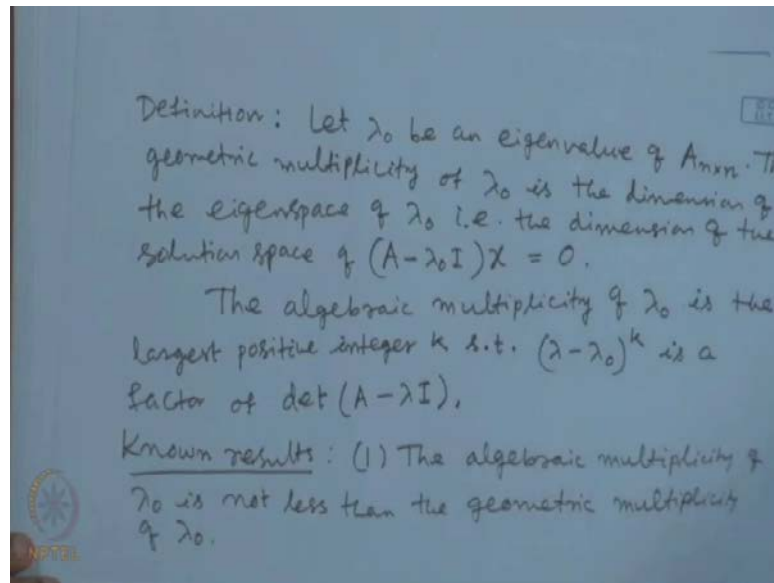 Definition: Let λ₀ be an eigenvalue of Aₙₓₙ. Th
geometric multiplicity of λ₀ is the dimension of
the eigenspace of λ₀ i.e. the dimension of the
solution space of (A - λ₀I)X = 0.
The algebraic multiplicity of λ₀ is the
largest positive integer k s.t. (λ - λ₀)ᵏ is a
factor of det (A - λI).
Known results: (1) The algebraic multiplicity of
λ₀ is not less than the geometric multiplicity
of λ₀.
NPTEL